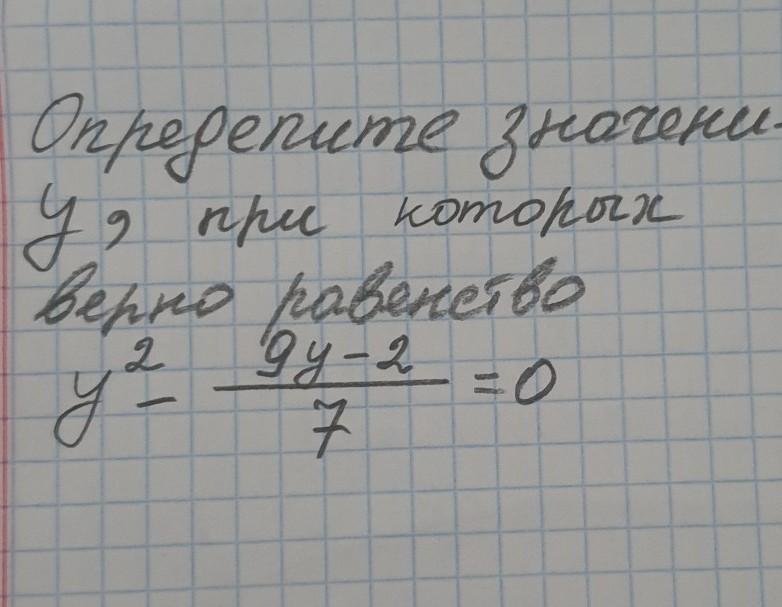 Определите значени
y, при которых
верно равенство
y² - (9y-2)/7 = 0